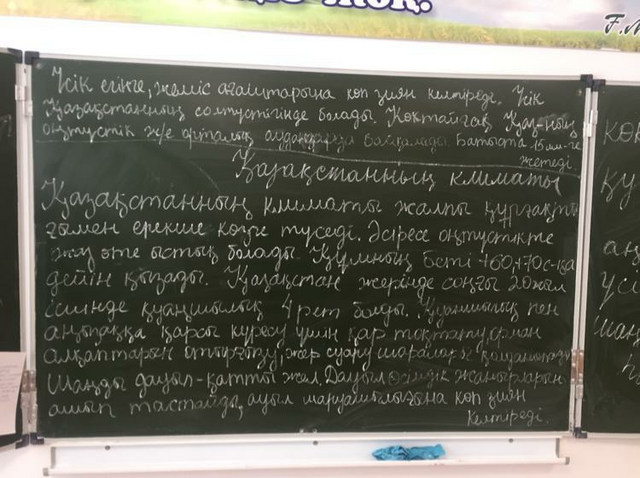 Үсік егінге, жеміс ағаштарына көп зиян келтіреді. Үсік
Қазақстанның солтүстігінде болады. Көктайғақ Қаз-ның
оңтүстік ж/е орталық аудандарында байқалады. Батыста 15 мм-ге
жетеді.
Қазақстанның климаты
Қазақстанның климаты жалпы құрғақты
ғымен ерекше көзге түседі. Әсіресе оңтүстікте
жаз өте ыстық болады. Құмның беті +60,+70с-қа
дейін қызады. Қазақстан жерінде соңғы 20 жыл
ішінде қуаңшылық 4 рет болды. Қуаңшылық пен
аңызаққа қарсы күресу үшін қар тоқтату, орман
алқаптарын отырғызу, жер суару шаралары қолданылады
Шаңды дауыл-қатты жел. Дауыл өсімдік жапырақтарын
ашып тастайды, ауыл шаруашылығына көп зиян
келтіреді.